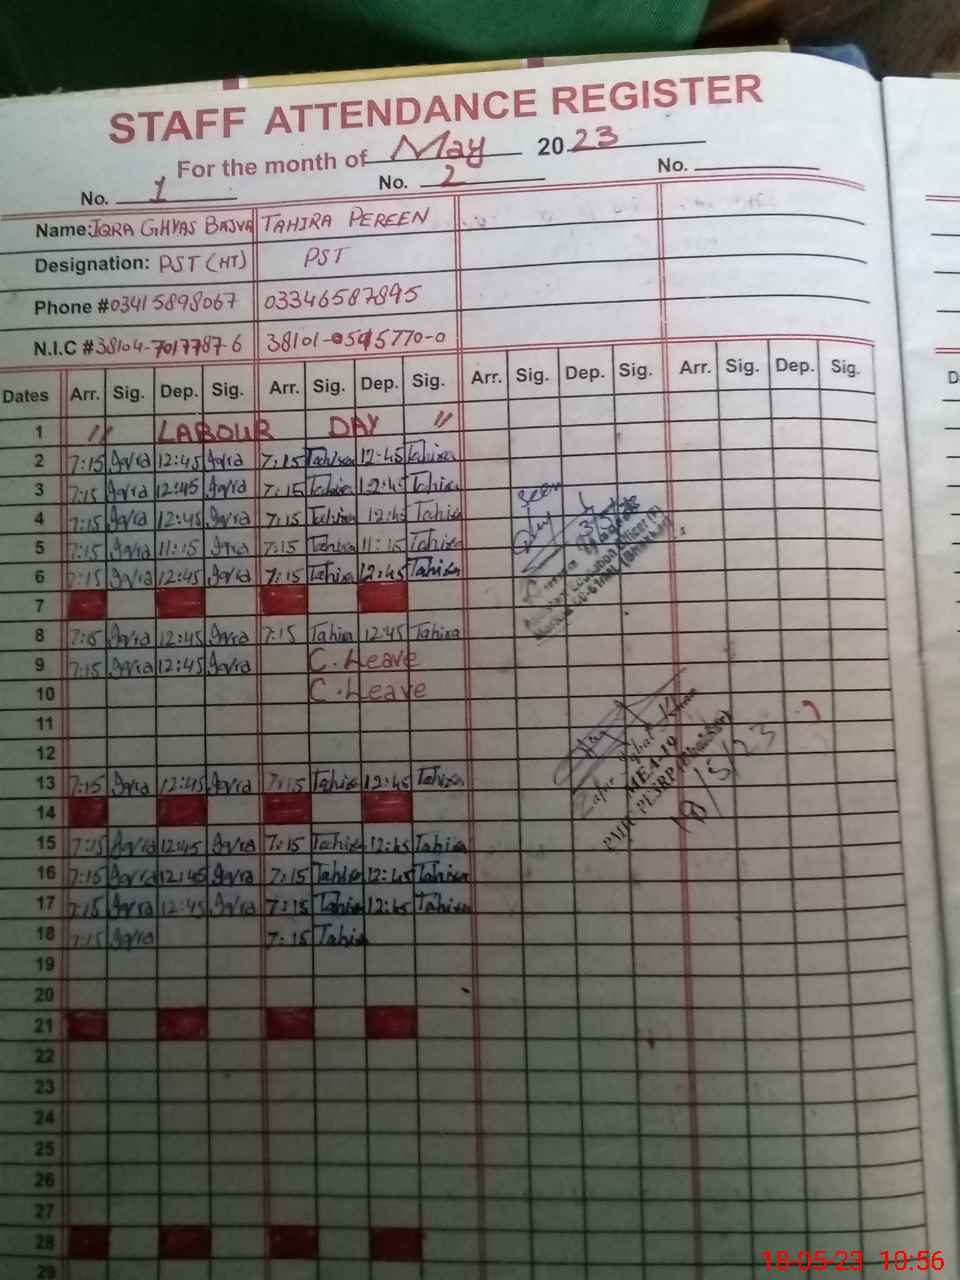 STAFF ATTENDANCE REGISTER
For the month of May 2023
No. 1 No. 2 No.
Name: IQRA GHYAS BAJVA TAHIRA PEREEN
Designation: PST (HT) PST
Phone # 03415898067 03346587895
N.I.C # 38104-7017787-6 38101-0595770-0
Dates Arr. Sig. Dep. Sig. Arr. Sig. Dep. Sig. Arr. Sig. Dep. Sig. Arr. Sig. Dep. Sig.
1 " LABOUR DAY "
2 7:15 Iqra 12:45 Iqra 7:15 Tahira 12:45 Tahira
3 7:15 Iqra 12:45 Iqra 7:15 Tahira 12:45 Tahira
4 7:15 Iqra 12:45 Iqra 7:15 Tahira 12:45 Tahira
5 7:15 Iqra 11:15 Iqra 7:15 Tahira 11:15 Tahira
6 7:15 Iqra 12:45 Iqra 7:15 Tahira 12:45 Tahira
7
8 7:15 Iqra 12:45 Iqra 7:15 Tahira 12:45 Tahira
9 7:15 Iqra 12:45 Iqra C. Leave
10 C. Leave
11
12
13 7:15 Iqra 12:45 Iqra 7:15 Tahira 12:45 Tahira
14
15 7:15 Iqra 12:45 Iqra 7:15 Tahira 12:45 Tahira
16 7:15 Iqra 12:45 Iqra 7:15 Tahira 12:45 Tahira
17 7:15 Iqra 12:45 Iqra 7:15 Tahira 12:45 Tahira
18 7:15 Iqra 7:15 Tahira
19
20
21
22
23
24
25
26
27
28
29
Seen
Education Officer
Zafar Iqbal Khan
MEA-19
18/5/23
D
18-05-23 10:56